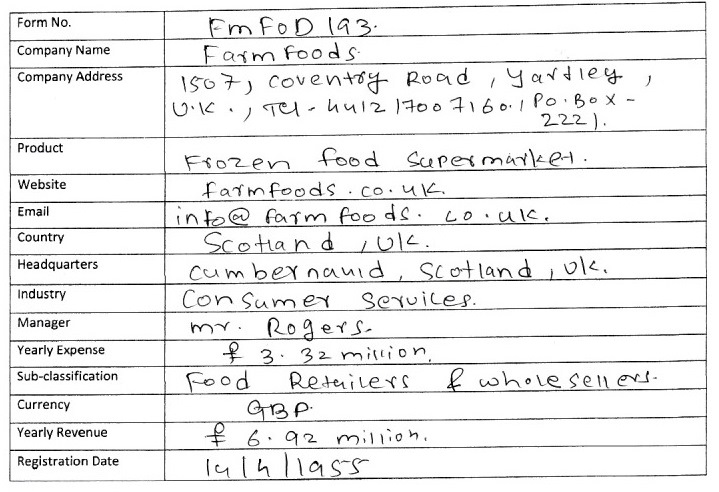 Form No. FmFoD 193.
Company Name Farmfoods.
Company Address 1507, Coventry Road, Yardley,
U.K., Tel - 441217007160. / Po. Box -
2221.
Product Frozen food Supermarket.
Website farmfoods.co.uk.
Email info@farmfoods.co.uk.
Country Scotland, UK.
Headquarters Cumbernauld, Scotland, UK.
Industry Consumer Services.
Manager mr. Rogers.
Yearly Expense £ 3.32 million.
Sub-classification Food Retailers & wholesellers.
Currency GBP.
Yearly Revenue £ 6.92 million.
Registration Date 14/4/1955